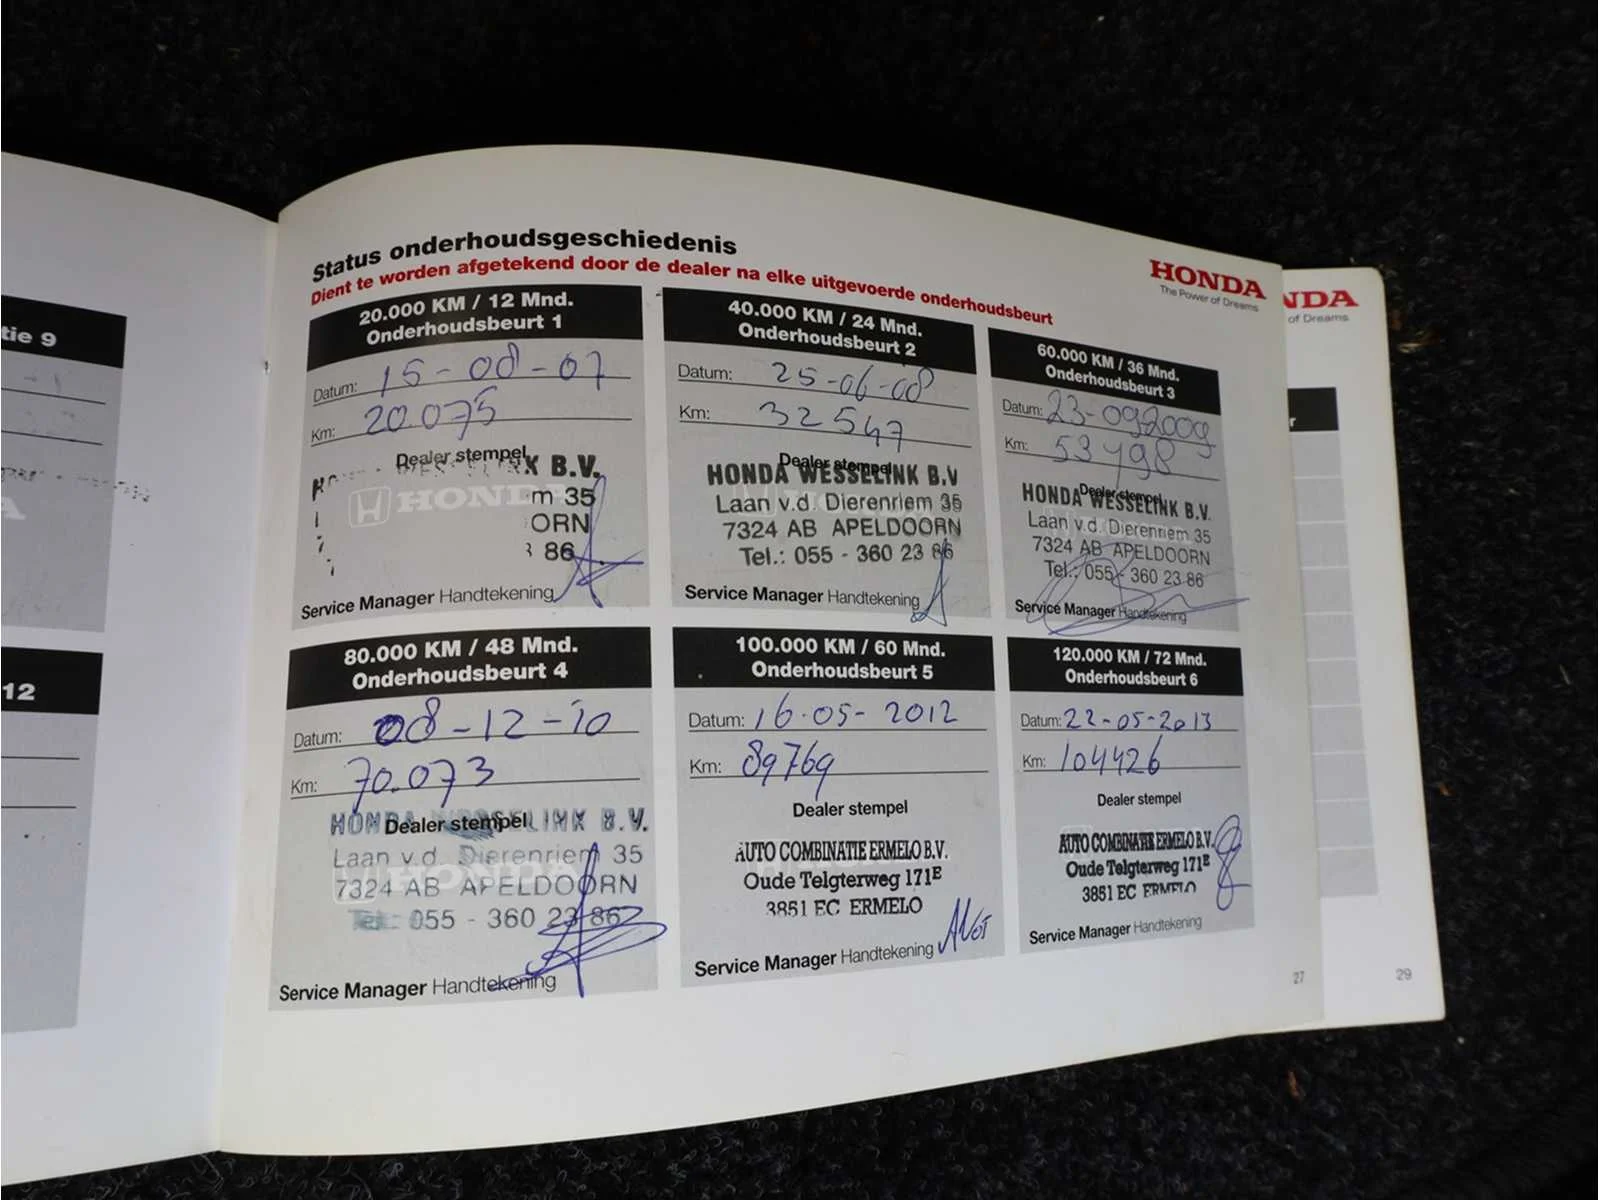 tie 9
12
Status onderhoudsgeschiedenis
Dient te worden afgetekend door de dealer na elke uitgevoerde onderhoudsbeurt
HONDA
The Power of Dreams
20.000 KM / 12 Mnd.
Onderhoudsbeurt 1
Datum: 15-08-07
Km: 20.075
Dealer stempel
WESSELINK B.V.
HONDA
m 35
ORN
86
Service Manager Handtekening
40.000 KM / 24 Mnd.
Onderhoudsbeurt 2
Datum: 25-06-08
Km: 32547
Dealer stempel
HONDA WESSELINK B.V
Laan v.d. Dierenriem 35
7324 AB APELDOORN
Tel.: 055 - 360 23 86
Service Manager Handtekening
60.000 KM / 36 Mnd.
Onderhoudsbeurt 3
Datum: 23-09-2009
Km: 53498
Dealer stempel
HONDA WESSELINK B.V.
Laan v.d. Dierenriem 35
7324 AB APELDOORN
Tel.: 055 - 360 23 86
Service Manager Handtekening
80.000 KM / 48 Mnd.
Onderhoudsbeurt 4
Datum: 08-12-10
Km: 70.073
Dealer stempel
HONDA WESSELINK B.V.
Laan v.d. Dierenriem 35
7324 AB APELDOORN
Tel.: 055 - 360 23 86
Service Manager Handtekening
100.000 KM / 60 Mnd.
Onderhoudsbeurt 5
Datum: 16-05-2012
Km: 89769
Dealer stempel
AUTO COMBINATIE ERMELO B.V.
Oude Telgterweg 171E
3851 EC ERMELO
Service Manager Handtekening
120.000 KM / 72 Mnd.
Onderhoudsbeurt 6
Datum: 22-05-2013
Km: 104426
Dealer stempel
AUTO COMBINATIE ERMELO B.V.
Oude Telgterweg 171E
3851 EC ERMELO
Service Manager Handtekening
27
NDA
of Dreams
r
29